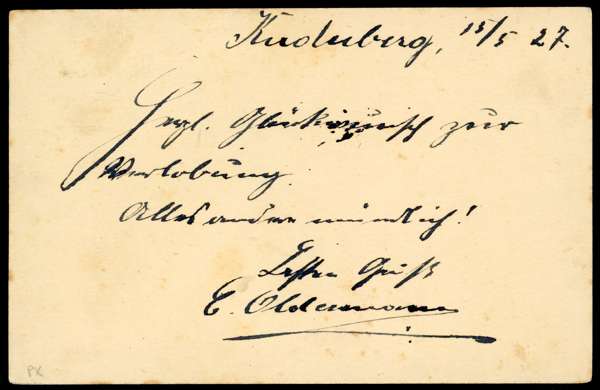 Kuduberg, 15/5 27.
Herzl. Glückwunsch zur
Verlobung.
Alles andere mündlich!
Besten Gruß
E. Oldemann
PK